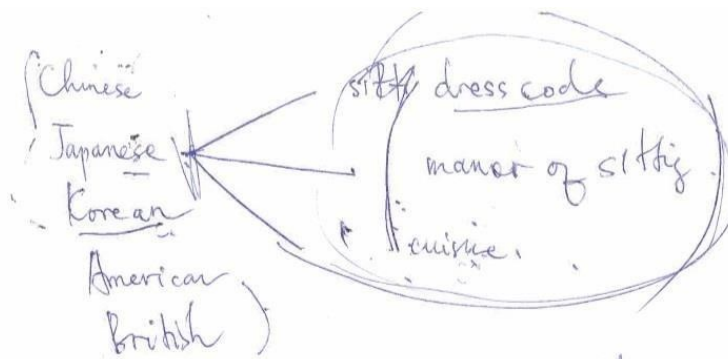 Chinese
Japanese
Korean
American
British
dress code
manor of sittig
cuisie.